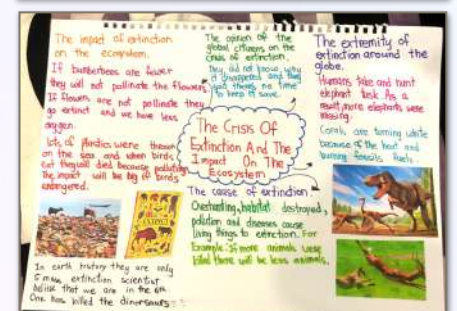 The impact of extinction
on the ecosystem.
If bumberbees are fewer
they will not pollinate the flowers
If flowers are not pollinate they
go extinct and we have less
oxygen.
lots of plastics were thrown
on the sea and when birds
eat they will died because pollution
The impact will be big if birds
endangered.
In earth history they are only
5 mass extinction scientist
belive that we are in the 6th
One has killed the dinorsaurs
The opinion of the
global citizens on the
crisis of extinction.
they did not know why
it happened and they
said there's no time
to keep it save.
The Crisis Of
Extinction And The
Impact On The
Ecosystem
The cause of extinction
Overhunting, habitat destroyed,
pollution and diseases cause
living things to extinction. For
Example: If more animals were
killed there will be less animals.
The extremity of
extinction around the
globe.
Humans take and hunt
elephant tusk. As a
result, more elephants were
missing.
Corals are turning white
because of the heat and
burning fossils fuels.